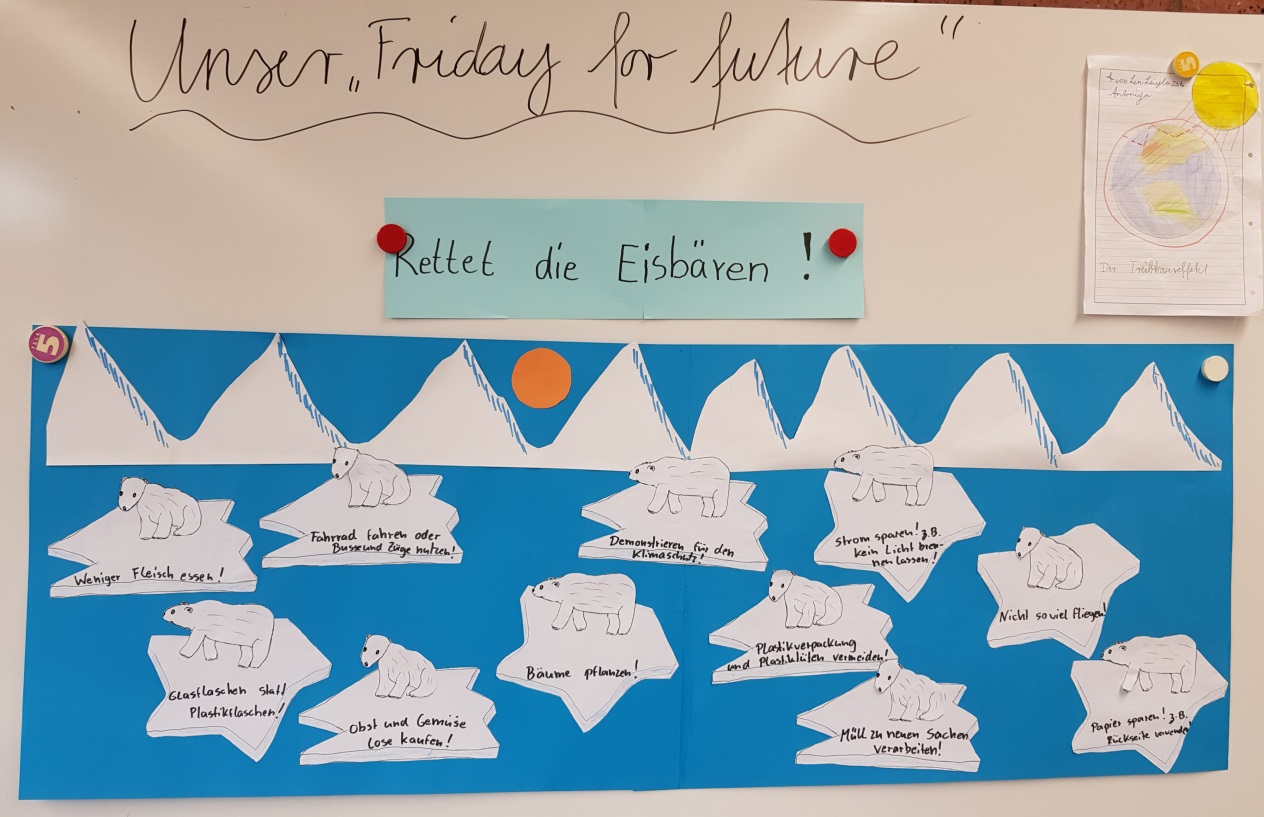 Unser „Friday for future“
von
Antoniya
Der Treibhauseffekt
Rettet die Eisbären!
Weniger Fleisch essen!
Fahrrad fahren oder
Busse und Züge nutzen!
Demonstrieren für den
Klimaschutz!
Strom sparen! z.B.
kein Licht bren-
nen lassen!
Nicht so viel fliegen!
Glasflaschen statt
Plastikflaschen!
Obst und Gemüse
lose kaufen!
Bäume pflanzen!
Plastikverpackung
und Plastiktüten vermeiden!
Müll zu neuen Sachen
verarbeiten!
Papier sparen! z.B.
Rückseite